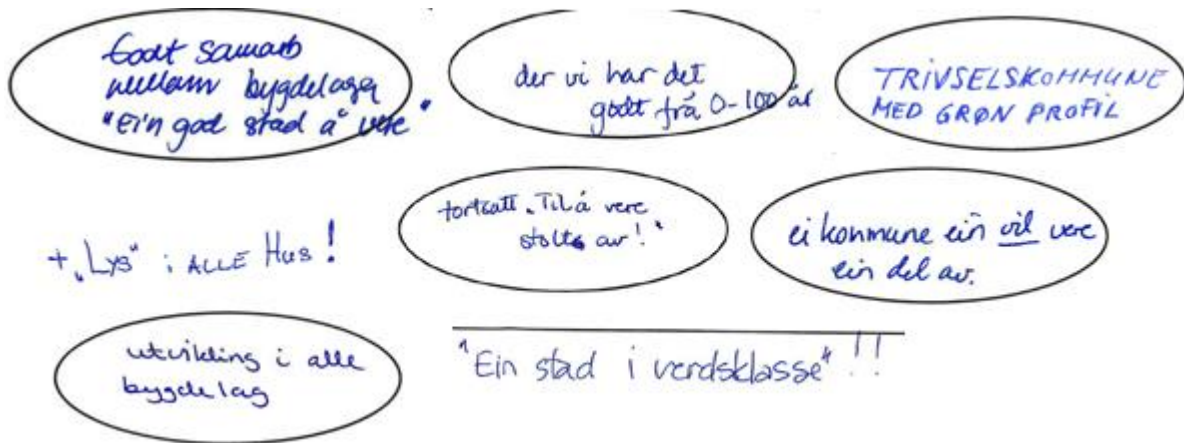 Godt samarb
mellom bygdelaga
"Ein god stad å vere"
der vi har det
godt frå 0-100 år
TRIVSELSKOMMUNE
MED GRØN PROFIL
fortsatt "Til å vere
stolte av!"
ei kommune ein vil vere
ein del av.
+ "Lys" i ALLE Hus!
utvikling i alle
bygdelag
"Ein stad i verdsklasse"!!